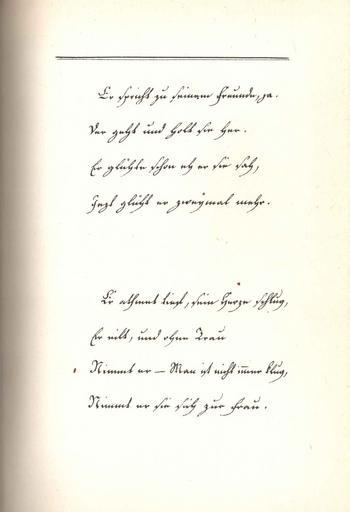 Er spricht zu seinem Freunde, ja.
Der geht und holt sie her.
Er glühte schon eh er sie sah,
Jezt glüht er zweymal mehr.
Er athmet tief, sein Herze schlug,
Er eilt, und ohne Trau
Nimmt er — Man ist nicht immer klug,
Nimmt er sie sich zur Frau.